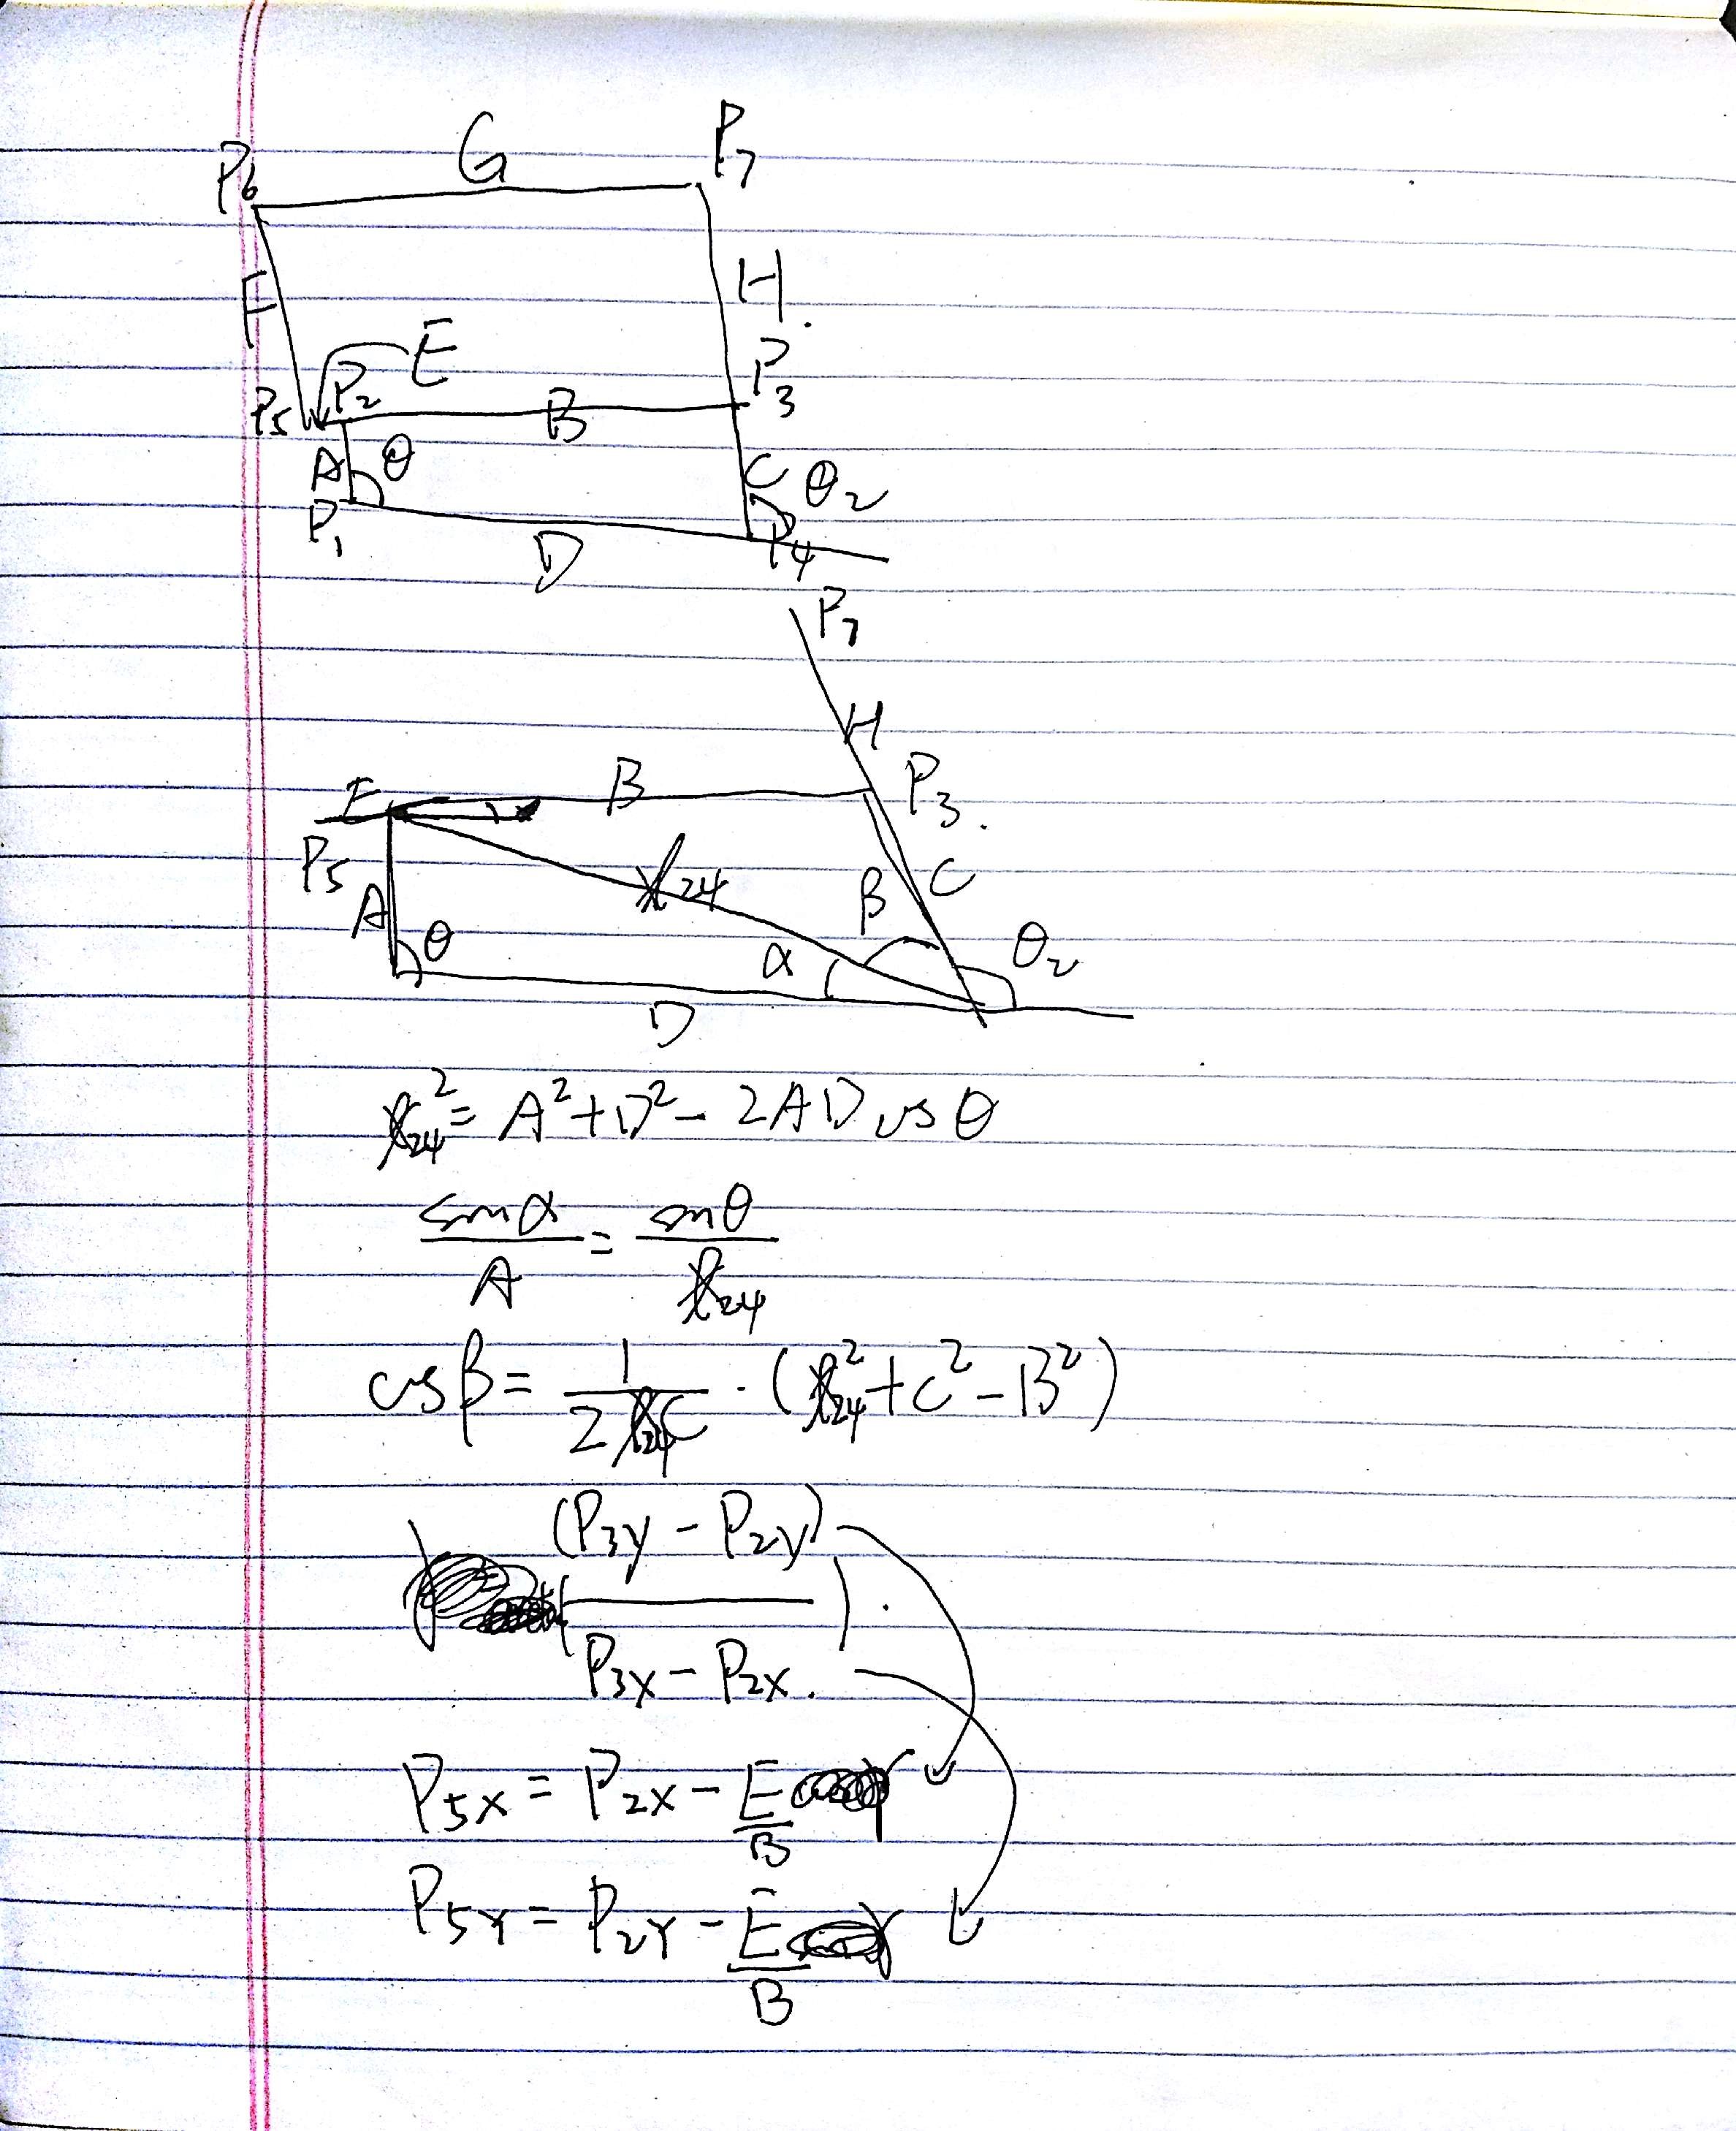 P6 G P7
F H.
E
P5 P2 B P3
A θ C θ2
P1 D P4
P7
H
E B P3.
P5 ℓ24 β C
A θ α θ2
D
ℓ24² = A² + D² - 2AD cos θ
sin α / A = sin θ / ℓ24
cos β = 1 / 2ℓ24C · (ℓ24² + C² - B²)
(P3y - P2y)
( ——— ) ·
P3x - P2x.
P5x = P2x - E/B
P5y = P2y - E/B